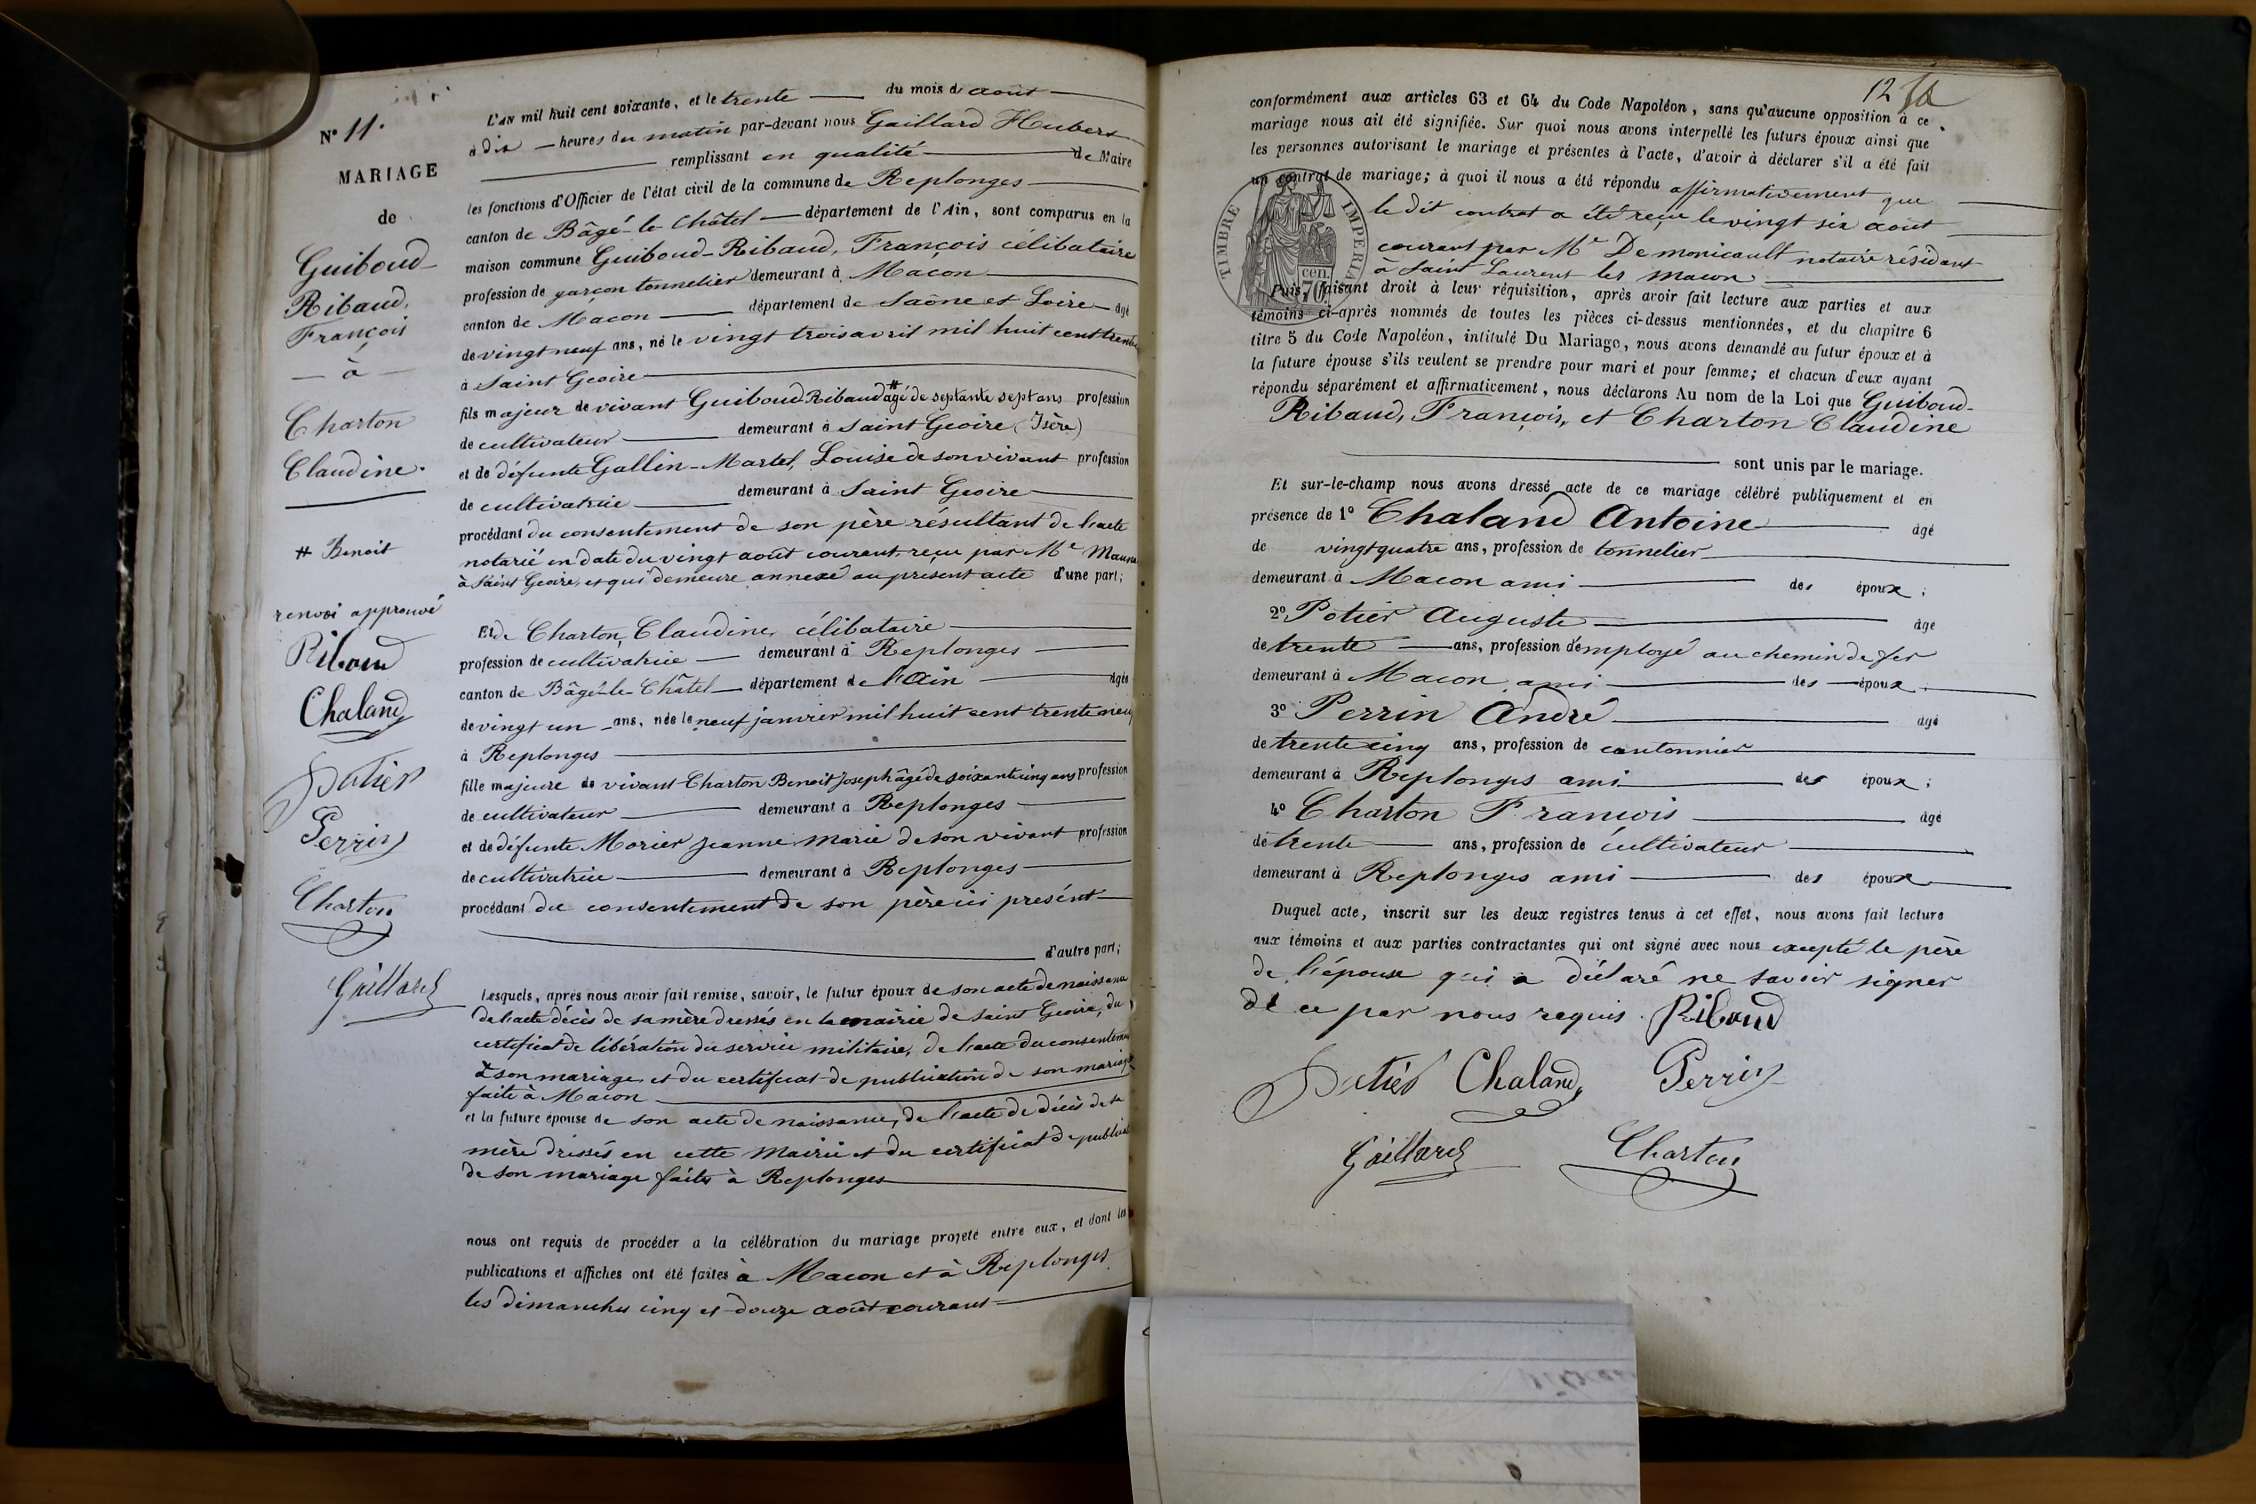 N° 11.
MARIAGE
de
Guiboud-
Ribaud,
François
— à —
Charton
Claudine.
# Benoit
renvoi approuvé
Riboud
Chaland
Potier
Perrin
Charton
Gaillard
L'AN mil huit cent soixante, et le trente du mois de août
à dix heures du matin par-devant nous Gaillard Hubert
remplissant en qualité de Maire
les fonctions d'Officier de l'état civil de la commune de Replonges
canton de Bâgé-le-Châtel département de l'Ain, sont comparus en la
maison commune Guiboud-Ribaud, François célibataire
profession de garçon tonnelier demeurant à Macon
canton de Macon département de Saône et Loire âgé
de vingt neuf ans, né le vingt trois avril mil huit cent trente
à Saint Geoire
fils majeur de vivant Guiboud Ribaud # âgé de septante sept ans profession
de cultivateur demeurant à Saint Geoire (Isère)
et de défunte Gallin-Martel, Louise de son vivant profession
de cultivatrice demeurant à Saint Geoire
procédant du consentement de son père résultant de l'acte
notarié en date du vingt août courant reçu par Me
à Saint Geoire, et qui demeure annexé au présent acte d'une part;
Et de Charton, Claudine, célibataire
profession de cultivatrice demeurant à Replonges
canton de Bâgé-le-Châtel département de l'Ain âgée
de vingt un ans, née le neuf janvier mil huit cent trente neuf
à Replonges
fille majeure de vivant Charton Benoit Joseph âgé de soixante cinq ans profession
de cultivateur demeurant à Replonges
et de défunte Morier Jeanne Marie de son vivant profession
de cultivatrice demeurant à Replonges
procédant du consentement de son père ici présent
d'autre part;
Lesquels, après nous avoir fait remise, savoir, le futur époux de son acte de naissance
de l'acte décès de sa mère dressés en la mairie de Saint Geoire, du
certificat de libération du service militaire, de l'acte du consentement
à son mariage, et du certificat de publication de son mariage
faite à Macon
et la future épouse de son acte de naissance, de l'acte de décès de sa
mère dressés en cette Mairie et du certificat de
de son mariage faites à Replonges
nous ont requis de procéder à la célébration du mariage projeté entre eux, et dont les
publications et affiches ont été faites à Macon et à Replonges
les dimanches cinq et douze août courant
12
conformément aux articles 63 et 64 du Code Napoléon, sans qu'aucune opposition à ce
mariage nous ait été signifiée. Sur quoi nous avons interpellé les futurs époux ainsi que
les personnes autorisant le mariage et présentes à l'acte, d'avoir à déclarer s'il a été fait
un contrat de mariage; à quoi il nous a été répondu affirmativement que
le dit contrat a été reçu le vingt six août
courant par Me Demonicault notaire résidant
à Saint Laurent les Macon
TIMBRE IMPERIAL
70 cen.
Puis, faisant droit à leur réquisition, après avoir fait lecture aux parties et aux
témoins ci-après nommés de toutes les pièces ci-dessus mentionnées, et du chapitre 6
titre 5 du Code Napoléon, intitulé Du Mariage, nous avons demandé au futur époux et à
la future épouse s'ils veulent se prendre pour mari et pour femme; et chacun d'eux ayant
répondu séparément et affirmativement, nous déclarons Au nom de la Loi que Guiboud-
Ribaud, François, et Charton Claudine
sont unis par le mariage.
Et sur-le-champ nous avons dressé acte de ce mariage célébré publiquement et en
présence de 1° Chaland Antoine âgé
de vingt quatre ans, profession de tonnelier
demeurant à Macon ami des époux;
2° Potier Auguste âgé
de trente ans, profession d'employé au chemin de fer
demeurant à Macon ami des époux
3° Perrin André âgé
de trente cinq ans, profession de cantonnier
demeurant à Replonges ami des époux;
4° Charton François âgé
de trente ans, profession de cultivateur
demeurant à Replonges ami des époux
Duquel acte, inscrit sur les deux registres tenus à cet effet, nous avons fait lecture
aux témoins et aux parties contractantes qui ont signé avec nous excepté le père
de l'épouse qui a déclaré ne savoir signer
de ce par nous requis. Riboud
Potier Chaland Perrin
Gaillard Charton